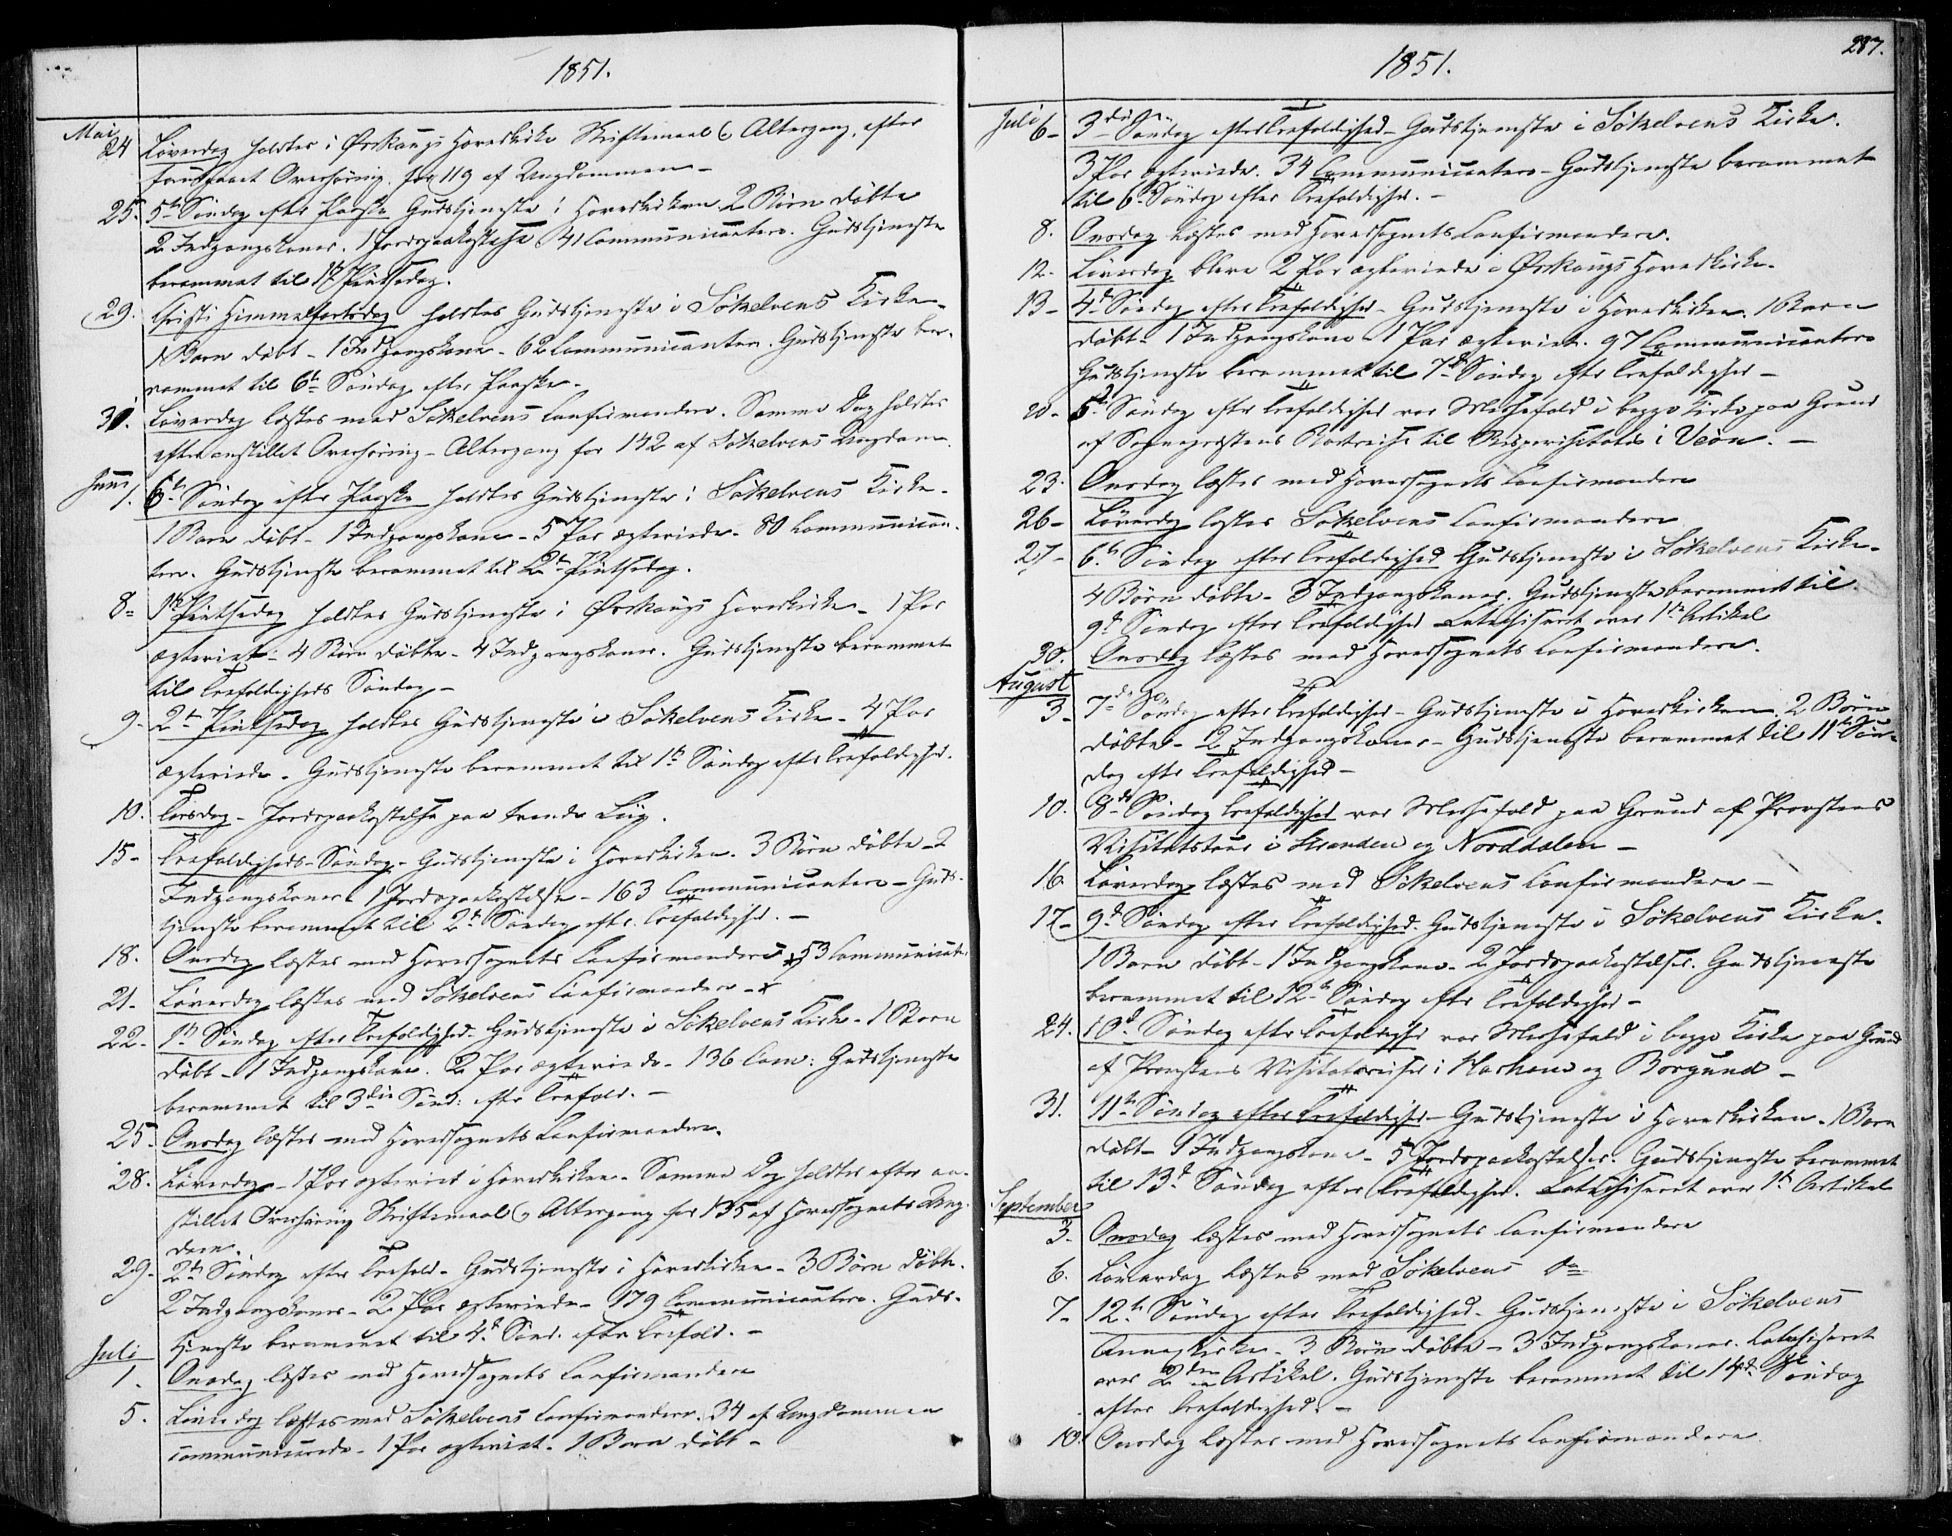 1851.
Mai
24 Løverdag holdtes i Ørskougs Hovedkirke Skriftemaal & Altergang, efter
foregaaet Overhøring, for 119 af Ungdommen –
25. 5te Søndag efter Paaske Gudstjeneste i Hovedkirken 2 Børn døbte
2 Indgangskoner. 1 Jordspaakastelse 41 Communicantere. Gudstjeneste
berammet til 1ste Pintsedag.
29. Christi Himmelfartsdag holdtes Gudstjeneste i Søkelvens Kirke.
1 Barn døbt – 1 Indgangskone – 62 Communicanter. Gudstjeneste be-
rammet til 6te Søndag efter Paaske.
31. Løverdag læstes med Søkelvens Confirmandere. Samme Dag holdtes
efter anstillet Overhøring – Altergang for 142 af Søkelvens Ungdom.
Juni
1. 6te Søndag efter Paaske holdtes Gudstjeneste i Søkelvens Kirke.
1 Barn døbt – 1 Indgangskone – 5 Par ægteviede. 80 Communican-
tere. Gudstjeneste berammet til 2den Pintsedag.
8 – 1ste Pintsedag holdtes Gudstjeneste i Ørskougs Hovedkirke – 1 Par
ægteviet – 4 Børn døbte – 4 Indgangskoner. Gudstjeneste berammet
til Trefoldigheds Søndag –
9 – 2den Pintsedag holdtes Gudstjeneste i Søkelvens Kirke – 4 Par
ægteviede. Gudstjeneste berammet til 1ste Søndag efter Trefoldighed.
10. Tirsdag – Jordspaakastelse paa trende Liig.
15 – Trefoldigheds-Søndag – Gudstjeneste i Hovedkirken. 3 Børn døbte – 2
Indgangskoner 1 Jordspaakastelse – 163 Communicantere – Guds-
tjeneste berammet til 2den Søndag efter Trefoldighed. –
18. Onsdag læstes med Hovedsognets Confirmandere 53 Communicanter
21 – Løverdag læstes med Søkelvens Confirmandere –
22 – 1ste Søndag efter Trefoldighed. Gudstjeneste i Søkelvens Kirke – 1 Barn
døbt – 1 Indgangskone. 2 Par ægteviede – 136 Com: Gudstjeneste
berammet til 3die Sønd: efter Trefold. –
25. Onsdag læstes med Hovedsognets Confirmandere.
28. Løverdag – 1 Par ægteviet i Hovedkirken – Samme Dag holdtes efter an-
stillet Overhøring Skriftemaal & Altergang for 135 af Hovedsognets Ung-
dom.
29 – 2den Søndag efter Trefold – Gudstjeneste i Hovedkirken – 3 Børn døbte.
2 Indgangskoner – 2 Par ægteviede – 179 Communicantere. Guds-
tjeneste berammet til 4de Sønd. efter Trefold. –
Juli
1. Onsdag læstes med Hovedsognets Confirmandere
5. Løverdag læstes med Søkelvens Confirmandere. 34 af Ungdommen
communicerede – 1 Par ægteviet – 1 Barn døbt –
287.
1851.
Juli 6 – 3die Søndag efter Trefoldighed – Gudstjeneste i Søkelvens Kirke.
3 Par ægteviede. 34 Communicantere – Gudstjeneste berammet
til 6te Søndag efter Trefoldighed. –
8. Onsdag læstes med Hovedsognets Confirmandere.
12. Løverdag bleve 2 Par ægteviede i Ørskougs Hovedkirke.
13 – 4de Søndag efter Trefoldighed – Gudstjeneste i Hovedkirken. 1 Barn
døbt – 1 Indgangskone 1 Par ægteviet. 97 Communicantere
Gudstjeneste berammet til 7de Søndag efter Trefoldighed –
20 – 5te Søndag efter Trefoldighed var Messefald i begge Kirker paa Grund
af Sognepræstens Bortreise til Bispevisitats i Veøn. –
23. Onsdag læstes med Hovedsognets Confirmandere
26 – Løverdag læstes Søkelvens Confirmandere
27 – 6te Søndag efter Trefoldighed Gudstjeneste i Søkelvens Kirke.
4 Børn døbte – 3 Indgangskoner. Gudstjeneste berammet til
9de Søndag efter Trefoldighed Catechiseret over 1ste Artikel
30. Onsdag læstes med Hovedsognets Confirmandere.
August
3 – 7de Søndag efter Trefoldighed – Gudstjeneste i Hovedkirken 2 Børn
døbte – 2 Indgangskoner – Gudstjeneste berammet til 11te Søn-
dag efter Trefoldighed –
10. 8de Søndag Trefoldighed var Messefald paa Grund af Provstens
Visitatstour i Stranden og Norddalen –
16. Løverdag læstes med Søkelvens Confirmandere –
17 – 9de Søndag efter Trefoldighed. Gudstjeneste i Søkelvens Kirke.
1 Barn døbt – 1 Indgangskone – 2 Jordspaakastelser. Gudstjeneste
berammet til 12te Søndag efter Trefoldighed –
24. 10de Søndag efter Trefoldighed var Messefald i begge Kirker paa Grund
af Provstens Visitatsreise i Harham og Borgund –
31. 11te Søndag efter Trefoldighed – Gudstjeneste i Hovedkirken. 1 Barn
døbt – 1 Indgangskone – 5 Jordspaakastelser. Gudstjeneste berammet
til 13de Søndag efter Trefoldighed. Catechiseret over 1ste Artikel
September
3. Onsdag læstes med Hovedsognets Confirmandere
6. Løverdag læstes med Søkelvens do
7 – 12te Søndag efter Trefoldighed – Gudstjeneste i Søkelvens
Annexkirke – 3 Børn døbte – 3 Indgangskoner. Catechiseret
over 2den Artikel. Gudstjeneste berammet til 14de Søndag
efter Trefoldighed. –
10. Onsdag læstes med Hovedsognets Confirmandere.